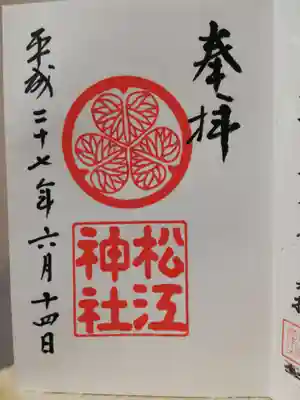 奉拝
松江
神社
平成二十七年六月十四日